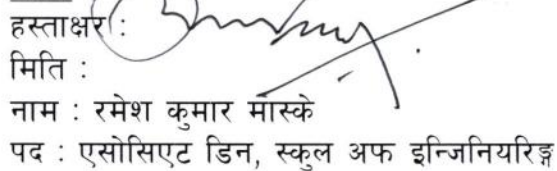 हस्ताक्षर :
मिति :
नाम : रमेश कुमार मास्के
पद : एसोसिएट डिन, स्कुल अफ इन्जिनियरिङ्ग